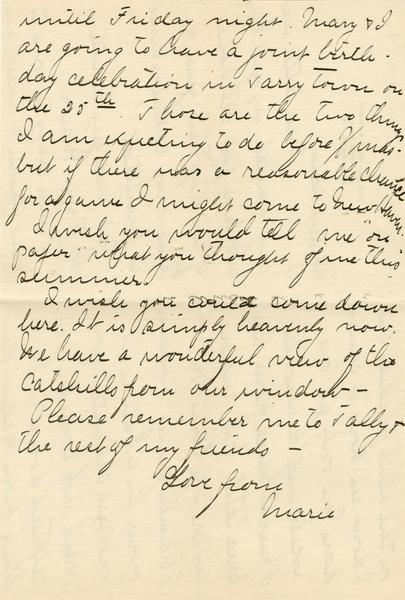 until Friday night. Mary & I
are going to have a joint birth-
day celebration in Tarrytown on
the 25th. Those are the two things
I am expecting to do before X/mas -
but if there was a reasonable chance
for a game I might come to New Haven.
I wish you would tell me "on
paper" what you thought of me this
summer.
I wish you could come down
here. It is simply heavenly now.
We have a wonderful view of the
Catskills from our window -
Please remember me to Tally &
the rest of my friends -
Love from
Marie